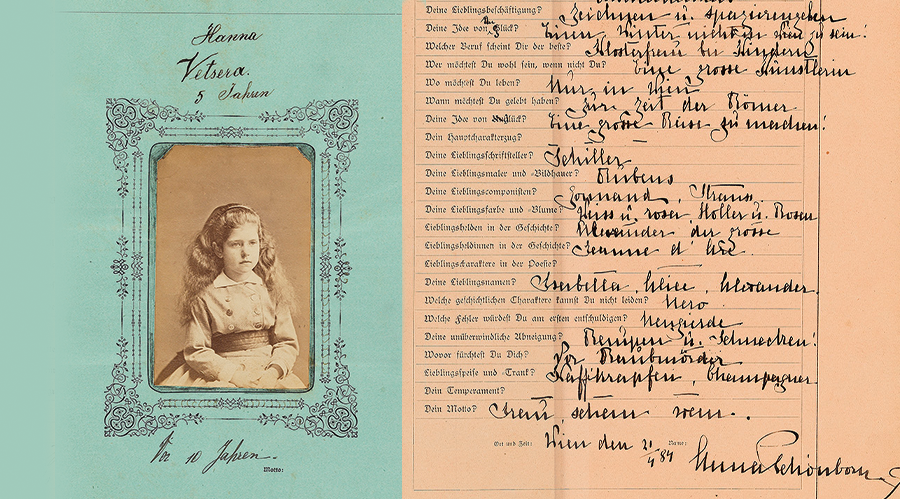 Hanna
Vetsera.
5 Jahren
Vor 10 Jahren.
Motto:
Deine Lieblingsbeschäftigung? Zeichnen u. spazierengehen
Deine Idee von Glück? Einen Winter nicht in Wien zu sein!
Welcher Beruf scheint Dir der beste? Klosterfrau bei Kindern
Wer möchtest Du wohl sein, wenn nicht Du? Eine grosse Künstlerin
Wo möchtest Du leben? Nur in Wien
Wann möchtest Du gelebt haben? Zur Zeit der Römer
Deine Idee von Unglück? Eine grosse Reise zu machen!
Dein Hauptcharakterzug?
Deine Lieblingsschriftsteller? Schiller
Deine Lieblingsmaler und -Bildhauer? Rubens
Deine Lieblingscomponisten? Gounaud, Strauss
Deine Lieblingsfarbe und -Blume? Weiss u. rosa,
Lieblingshelden in der Geschichte? Alexander der grosse
Lieblingsheldinnen in der Geschichte? Jeanne d' Arc.
Lieblingscharaktere in der Poesie?
Deine Lieblingsnamen? Isabella, Alice, Alexander.
Welche geschichtlichen Charaktere kannst Du nicht leiden? Nero.
Welche Fehler würdest Du am ersten entschuldigen? Neugierde
Deine unüberwindliche Abneigung? Raupen u. Schnecken!
Wovor fürchtest Du Dich? Vor Raubmörder
Lieblingsspeise und -Trank? Kaffikrapfen, Champagner
Dein Temperament?
Dein Motto? Trau, schau wem..
Ort und Zeit: Wien den 21/4 84 Name: Anna Schönborn